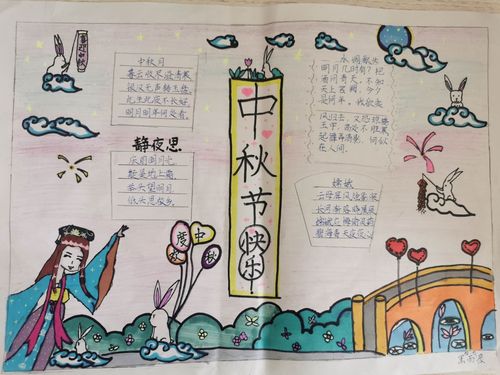 喜迎中秋
中秋月
暮云收尽溢清寒
银汉无声转玉盘
此生此夜不长好
明月明年何处看
静夜思
床前明月光
疑是地上霜
举头望明月
低头思故乡
中秋节快乐
度中秋
水调歌头
明月几时有？把
酒问青天，不知
天上宫阙，今夕
是何年，我欲乘
风归去，又恐琼楼
玉宇，高处不胜寒
起舞弄清影，何似
在人间。
嫦娥
云母屏风烛影深
长河渐落晓星沉
嫦娥应悔偷灵药
碧海青天夜夜心